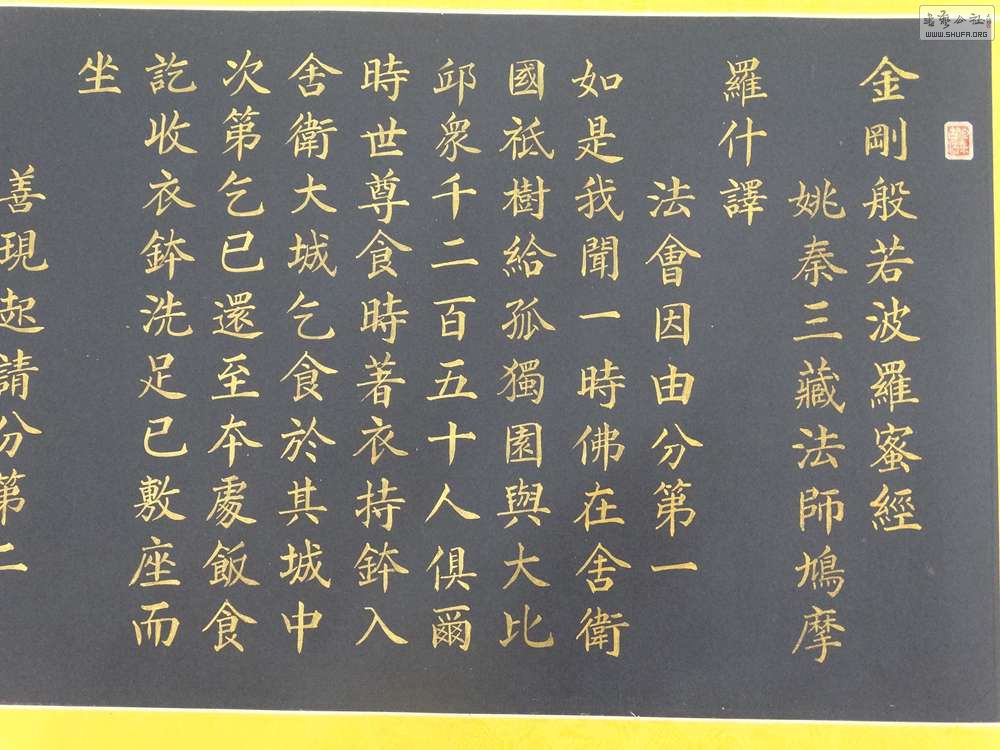 金剛般若波羅蜜經
姚秦三藏法師鳩摩
羅什譯
法會因由分第一
如是我聞一時佛在舍衛
國祇樹給孤獨園與大比
邱衆千二百五十人俱爾
時世尊食時著衣持鉢入
舍衛大城乞食於其城中
次第乞已還至本處飯食
訖收衣鉢洗足已敷座而
坐
善現起請分第二
书艺公社
WWW.SHUFA.ORG